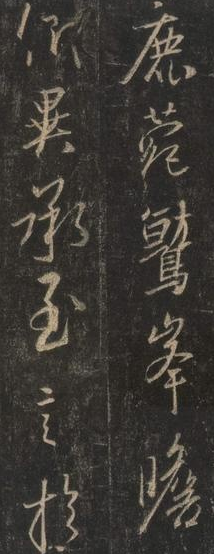 鹿菀鷲峯瞻
仰異承至言於